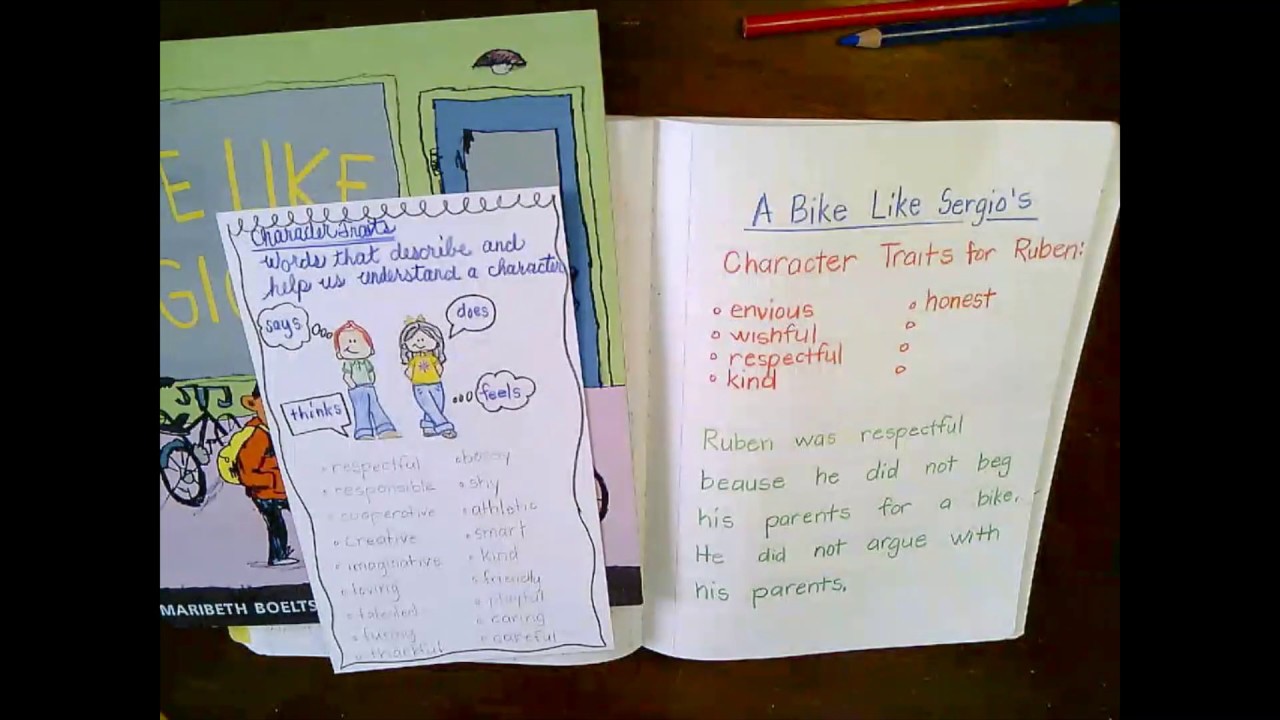 E LIKE
GIO
MARIBETH BOELTS
Character Traits
Words that describe and
help us understand a character
says
does
thinks
feels
respectful
responsible
cooperative
creative
imaginative
loving
talented
thankful
bossy
shy
athletic
smart
kind
friendly
playful
caring
careful
A Bike Like Sergio's
Character Traits for Ruben:
envious
wishful
respectful
kind
honest
Ruben was respectful
beause he did not beg
his parents for a bike.
He did not argue with
his parents.